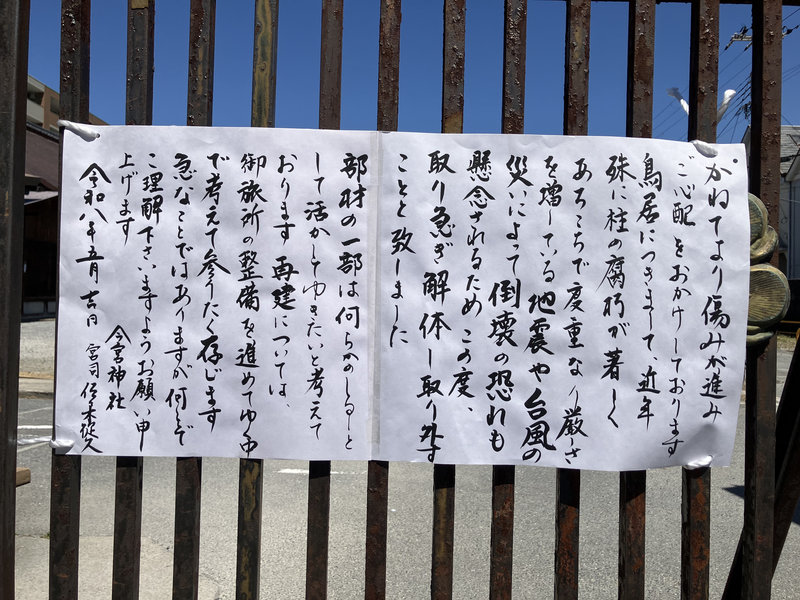 かねてより傷みが進み
ご心配をおかけしております
鳥居につきまして、近年
殊に柱の腐朽が著しく
あちこちで度重なり厳しさ
を増している地震や台風の
災いによって倒壊の恐れも
懸念されるためこの度、
取り急ぎ解体し取り外す
ことと致しました
部材の一部は何らかのしるしと
して活かしてゆきたいと考えて
おります 再建については、
御旅所の整備を進めてゆく中
で考えて参りたく存じます
急なことではありますが何とぞ
ご理解下さいますようお願い申
上げます
令和八年五月吉日
今宮神社
宮司 佐々木從久